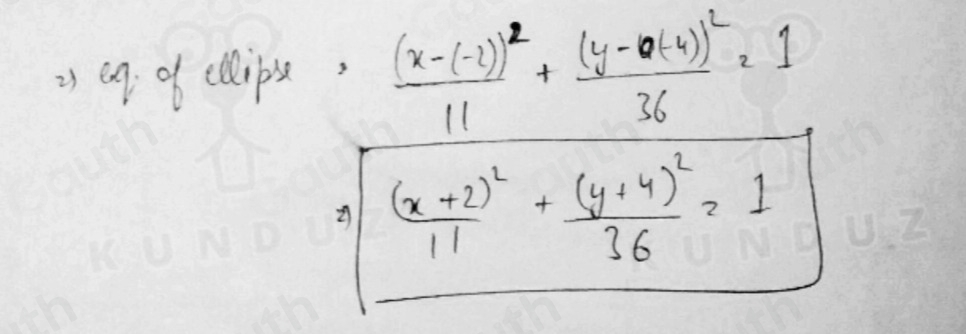 ⇒ eq. of ellipse ⇒ (x-(-2))² / 11 + (y-(-4))² / 36 = 1
⇒ (x+2)² / 11 + (y+4)² / 36 = 1
KUNDUZ KUNDUZ